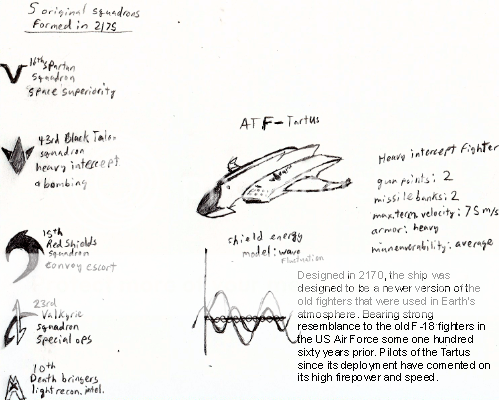 5 original squadrons
formed in 2175
16th Spartan
squadron
space superiority
43rd Black Talon
squadron
heavy intercept
& bombing
15th
Red Shields
squadron
convoy escort
23rd
Valkyrie
squadron
special ops
10th
Death bringers
light recon. intel.
ATF-Tartus
shield energy
model: wave
Fluctuation
Heavy intercept Fighter
gun points: 2
missile banks: 2
max. velocity: 75 m/s
armor: heavy
manueverability: average
Designed in 2170, the ship was
designed to be a newer version of the
old fighters that were used in Earth's
atmosphere. Bearing strong
resemblance to the old F-18 fighters in
the US Air Force some one hundred
sixty years prior. Pilots of the Tartus
since its deployment have comented on
its high firepower and speed.